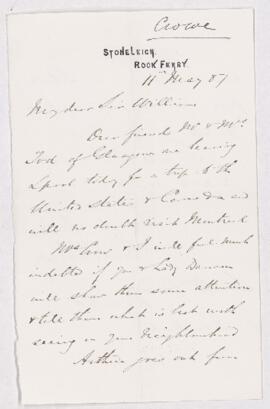 Crowe
STONELEIGH,
ROCK FERRY.
11th May 87
My dear Sir William
Our friends Mr & Mrs
Tod of Glasgow are leaving
L'pool today for a trip to the
United States & Canada and
will no doubt visit Montreal
Mrs Crowe & I will feel much
indebted if you & Lady Dawson
will show them some attention
& tell them what is best worth
seeing in your neighbourhood
goes out from